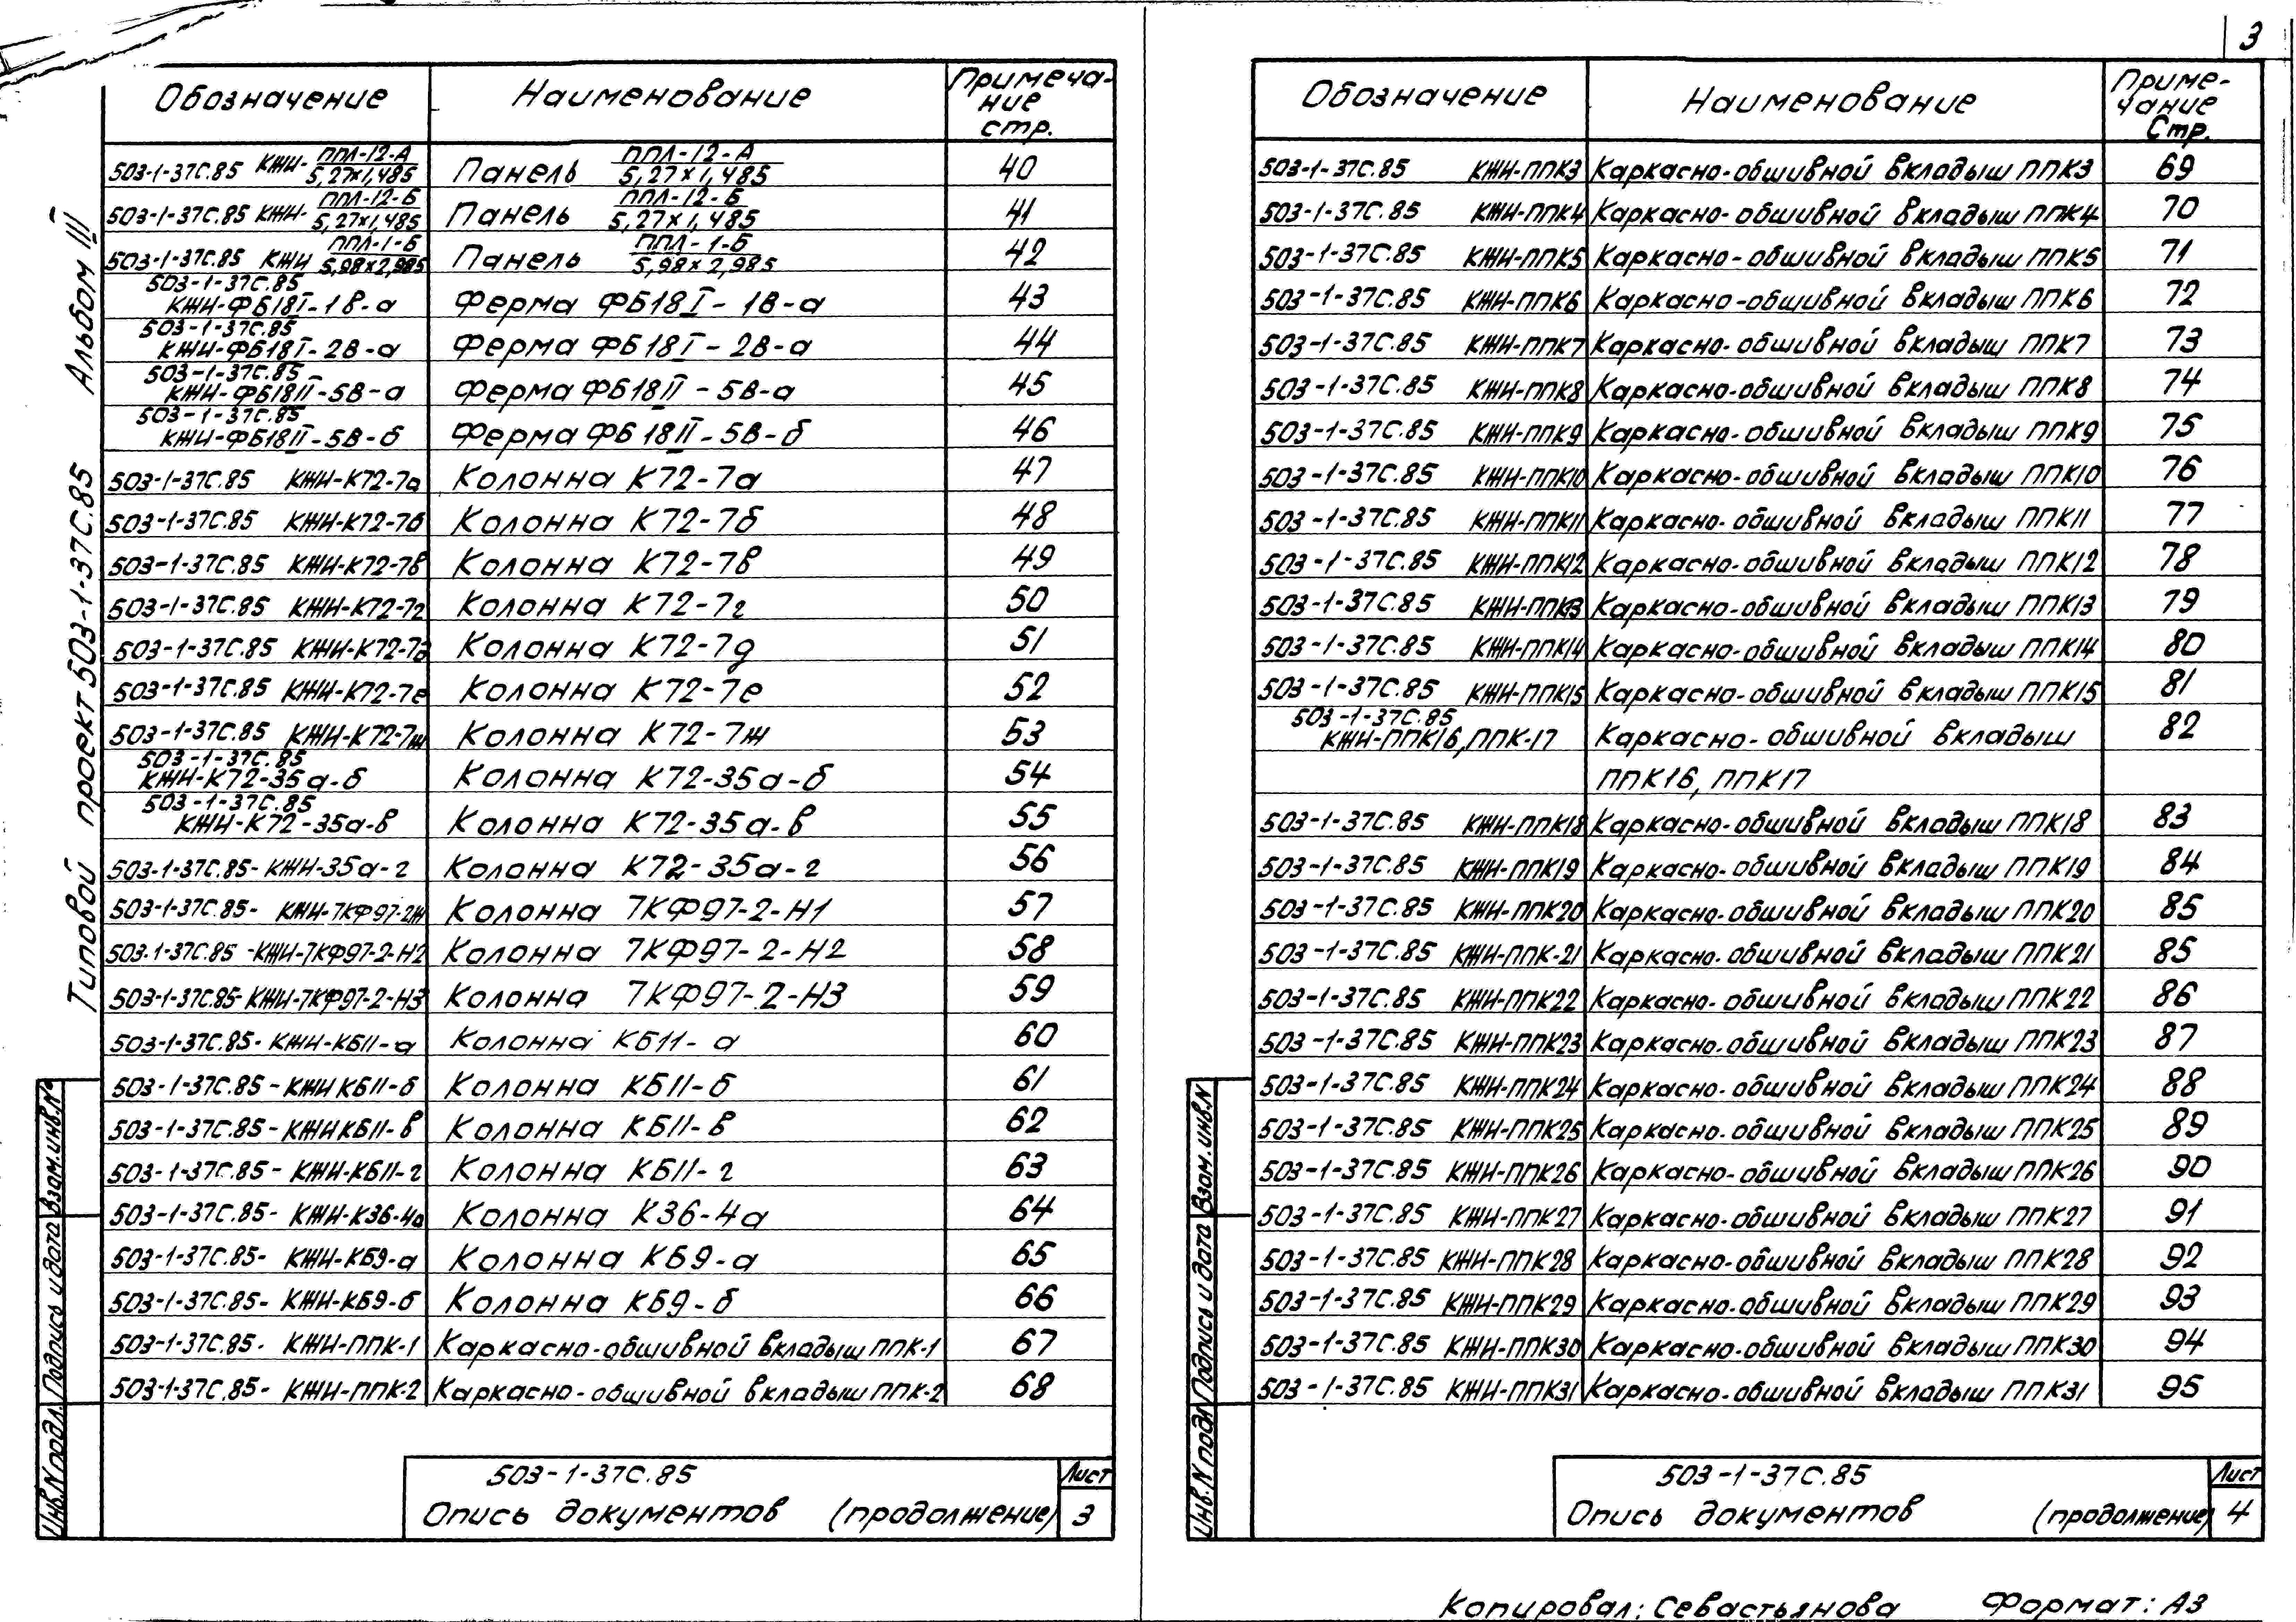 3
Типовой проект 503-1-37С.85 Альбом III
Обозначение Наименование Примеча-
ние
стр.
503-1-37С.85 КЖИ- ППЛ-12-А / 5,27×1,485 Панель ППЛ-12-А / 5,27×1,485 40
503-1-37С.85 КЖИ- ППЛ-12-Б / 5,27×1,485 Панель ППЛ-12-Б / 5,27×1,485 41
503-1-37С.85 КЖИ ППЛ-1-Б / 5,98×2,985 Панель ППЛ-1-Б / 5,98×2,985 42
503-1-37С.85
КЖИ-ФБ18I-1в-а Ферма ФБ18I-1В-а 43
503-1-37С.85
КЖИ-ФБ18I-2В-а Ферма ФБ18I-2В-а 44
503-1-37С.85
КЖИ-ФБ18II-5В-а Ферма ФБ18II-5В-а 45
503-1-37С.85
КЖИ-ФБ18II-5В-б Ферма ФБ18II-5В-б 46
503-1-37С.85 КЖИ-К72-7а Колонна К72-7а 47
503-1-37С.85 КЖИ-К72-7б Колонна К72-7б 48
503-1-37С.85 КЖИ-К72-7в Колонна К72-7в 49
503-1-37С.85 КЖИ-К72-7г Колонна К72-7г 50
503-1-37С.85 КЖИ-К72-7д Колонна К72-7д 51
503-1-37С.85 КЖИ-К72-7е Колонна К72-7е 52
503-1-37С.85 КЖИ-К72-7ж Колонна К72-7ж 53
503-1-37С.85
КЖИ-К72-35а-б Колонна К72-35а-б 54
503-1-37С.85
КЖИ-К72-35а-в Колонна К72-35а-в 55
503-1-37С.85-КЖИ-35а-г Колонна К72-35а-г 56
503-1-37С.85- КЖИ-7КФ97-2Н Колонна 7КФ97-2-Н1 57
503-1-37С.85 -КЖИ-7КФ97-2-Н2 Колонна 7КФ97-2-Н2 58
503-1-37С.85-КЖИ-7КФ97-2-Н3 Колонна 7КФ97-2-Н3 59
503-1-37С.85- КЖИ-КБ11-а Колонна КБ11-а 60
503-1-37С.85-КЖИ КБ11-б Колонна КБ11-б 61
503-1-37С.85-КЖИКБ11-в Колонна КБ11-в 62
503-1-37С.85- КЖИ-КБ11-г Колонна КБ11-г 63
503-1-37С.85- КЖИ-К36-4а Колонна К36-4а 64
503-1-37С.85- КЖИ-КБ9-а Колонна КБ9-а 65
503-1-37С.85- КЖИ-КБ9-б Колонна КБ9-б 66
503-1-37С.85. КЖИ-ППК-1 Каркасно-обшивной вкладыш ППК-1 67
503-1-37С.85- КЖИ-ППК-2 Каркасно-обшивной вкладыш ППК-2 68
Инв.N подл. Подпись и дата Взам.инв.N
503-1-37С.85 Лист
Опись документов (продолжение) 3
Обозначение Наименование Приме-
чание
Стр.
503-1-37С.85 КЖИ-ППК3 Каркасно-обшивной вкладыш ППК3 69
503-1-37С.85 КЖИ-ППК4 Каркасно-обшивной вкладыш ППК4 70
503-1-37С.85 КЖИ-ППК5 Каркасно-обшивной вкладыш ППК5 71
503-1-37С.85 КЖИ-ППК6 Каркасно-общивной вкладыш ППК6 72
503-1-37С.85 КЖИ-ППК7 Каркасно-обшивной вкладыш ППК7 73
503-1-37С.85 КЖИ-ППК8 Каркасно-обшивной вкладыш ППК8 74
503-1-37С.85 КЖИ-ППК9 Каркасно-обшивной вкладыш ППК9 75
503-1-37С.85 КЖИ-ППК10 Каркасно-обшивной вкладыш ППК10 76
503-1-37С.85 КЖИ-ППК11 Каркасно-обшивной вкладыш ППК11 77
503-1-37С.85 КЖИ-ППК12 Каркасно-обшивной вкладыш ППК12 78
503-1-37С.85 КЖИ-ППК13 Каркасно-обшивной вкладыш ППК13 79
503-1-37С.85 КЖИ-ППК14 Каркасно-обшивной вкладыш ППК14 80
503-1-37С.85 КЖИ-ППК15 Каркасно-обшивной вкладыш ППК15 81
503-1-37С.85
КЖИ-ППК16, ППК-17 Каркасно-обшивной вкладыш 82
ППК16, ППК17
503-1-37С.85 КЖИ-ППК18 Каркасно-обшивной вкладыш ППК18 83
503-1-37С.85 КЖИ-ППК19 Каркасно-обшивной вкладыш ППК19 84
503-1-37С.85 КЖИ-ППК20 Каркасно-обшивной вкладыш ППК20 85
503-1-37С.85 КЖИ-ППК-21 Каркасно-обшивной вкладыш ППК21 85
503-1-37С.85 КЖИ-ППК22 Каркасно-обшивной вкладыш ППК22 86
503-1-37С.85 КЖИ-ППК23 Каркасно-обшивной вкладыш ППК23 87
503-1-37С.85 КЖИ-ППК24 Каркасно-обшивной вкладыш ППК24 88
503-1-37С.85 КЖИ-ППК25 Каркасно-обшивной вкладыш ППК25 89
503-1-37С.85 КЖИ-ППК26 Каркасно-обшивной вкладыш ППК26 90
503-1-37С.85 КЖИ-ППК27 Каркасно-обшивной вкладыш ППК27 91
503-1-37С.85 КЖИ-ППК28 Каркасно-обшивной вкладыш ППК28 92
503-1-37С.85 КЖИ-ППК29 Каркасно-обшивной вкладыш ППК29 93
503-1-37С.85 КЖИ-ППК30 Каркасно-обшивной вкладыш ППК30 94
503-1-37С.85 КЖИ-ППК31 Каркасно-обшивной вкладыш ППК31 95
Инв.N подл Подпись и дата Взам.инв.N
503-1-37С.85 Лист
Опись документов (продолжение) 4
Копировал: Севастьянова Формат: А3